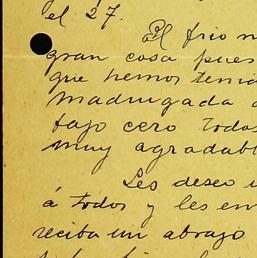 el 27.
El frio n
gran cosa pues
que hemos tenid
madrugada a
bajo cero todos
muy agradabl
Les deseo u
á todos y les en
reciba un abrazo